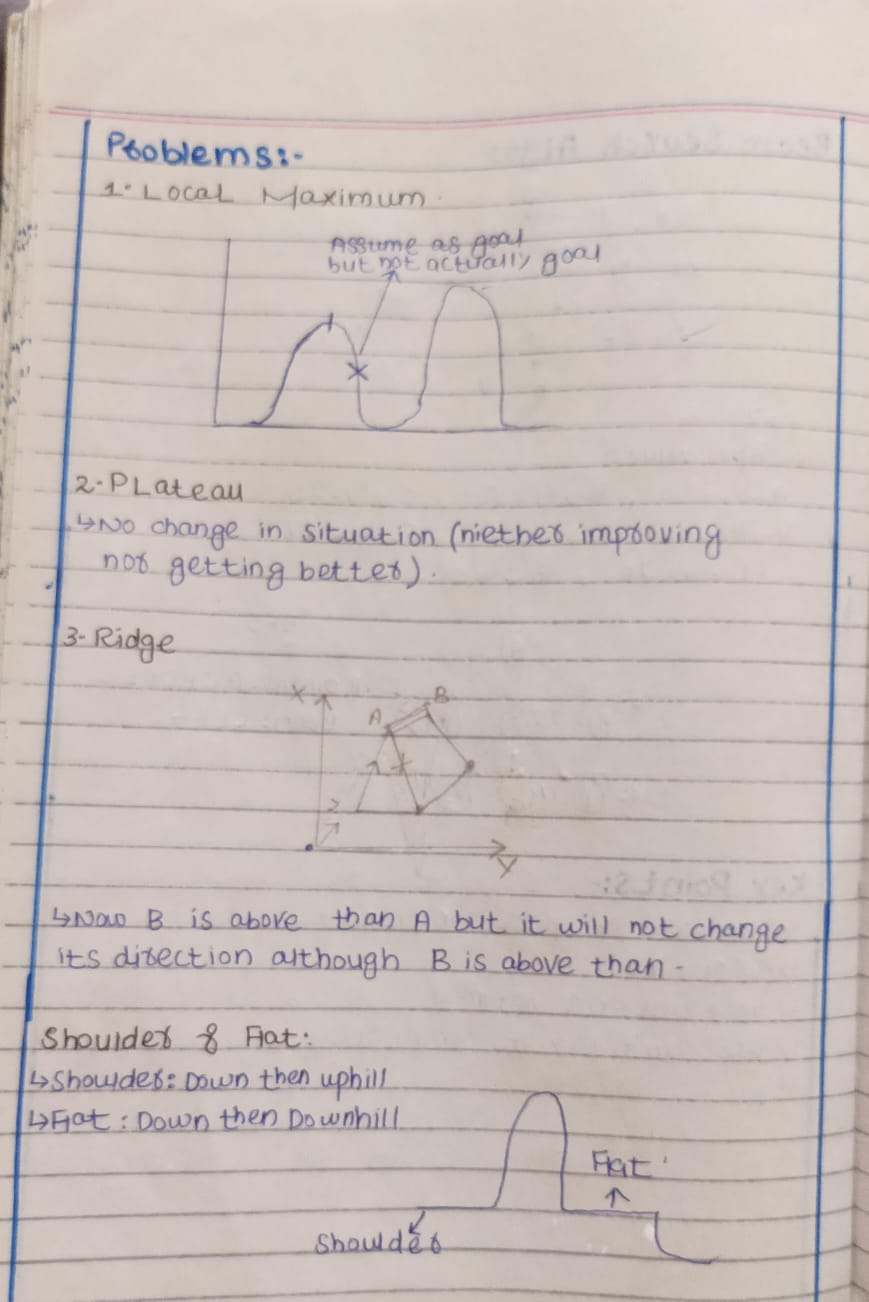 Problems:-
1. Local Maximum
Assume as goal
but not actually goal
2- Plateau
↳No change in situation (niether improving
nor getting better).
3- Ridge
X
A
B
1
2
Y
↳Now B is above than A but it will not change
its direction although B is above than -
Shoulder & Flat:
↳Shoulder: Down then uphill
↳Flat: Down then Downhill
Flat
Shoulder